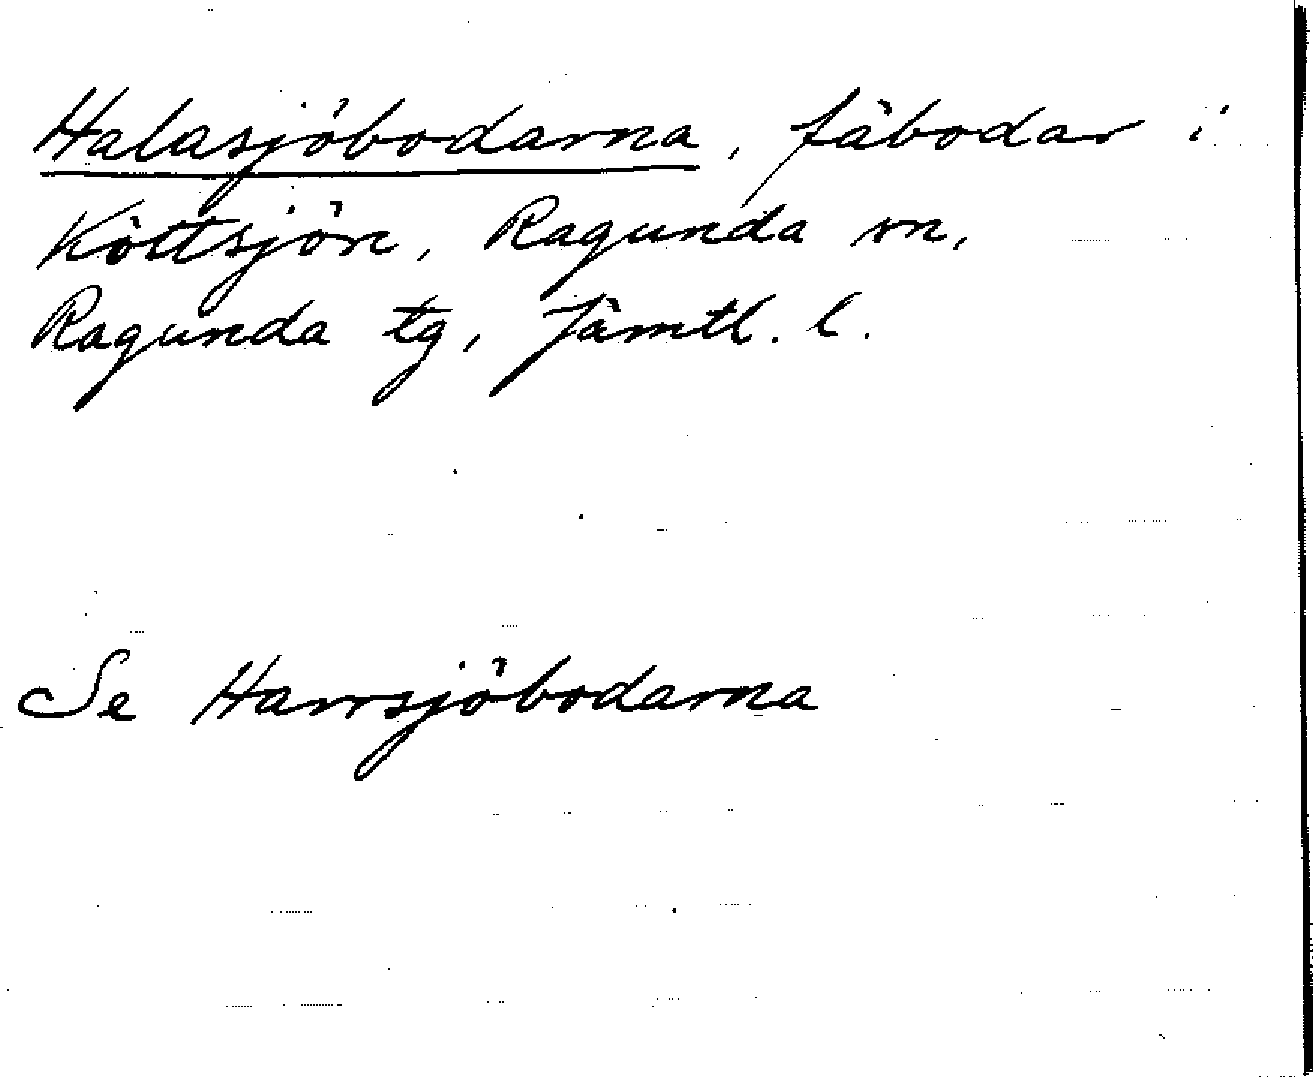 Halasjöbodarna, fäbodar i
Köttsjön, Ragunda sn,
Ragunda tg, Jämtl. l.
Se Harrsjöbodarna